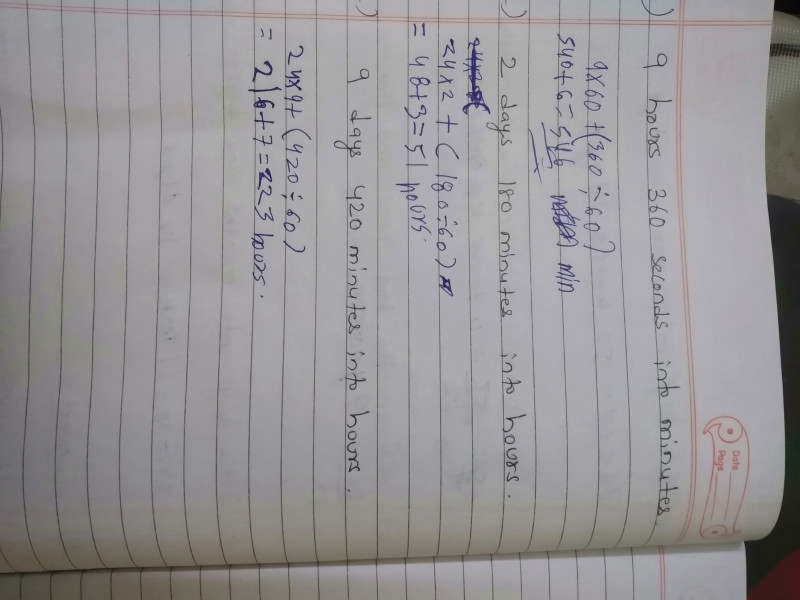 Date
Page
) 9 hours 360 seconds into minutes.
9×60+(360÷60)
540+6=546 min
) 2 days 180 minutes into hours.
24×2 + (180÷60)
= 48+3=51 hours.
) 9 days 420 minutes into hours.
24×9+(420÷60)
= 216+7=223 hours.